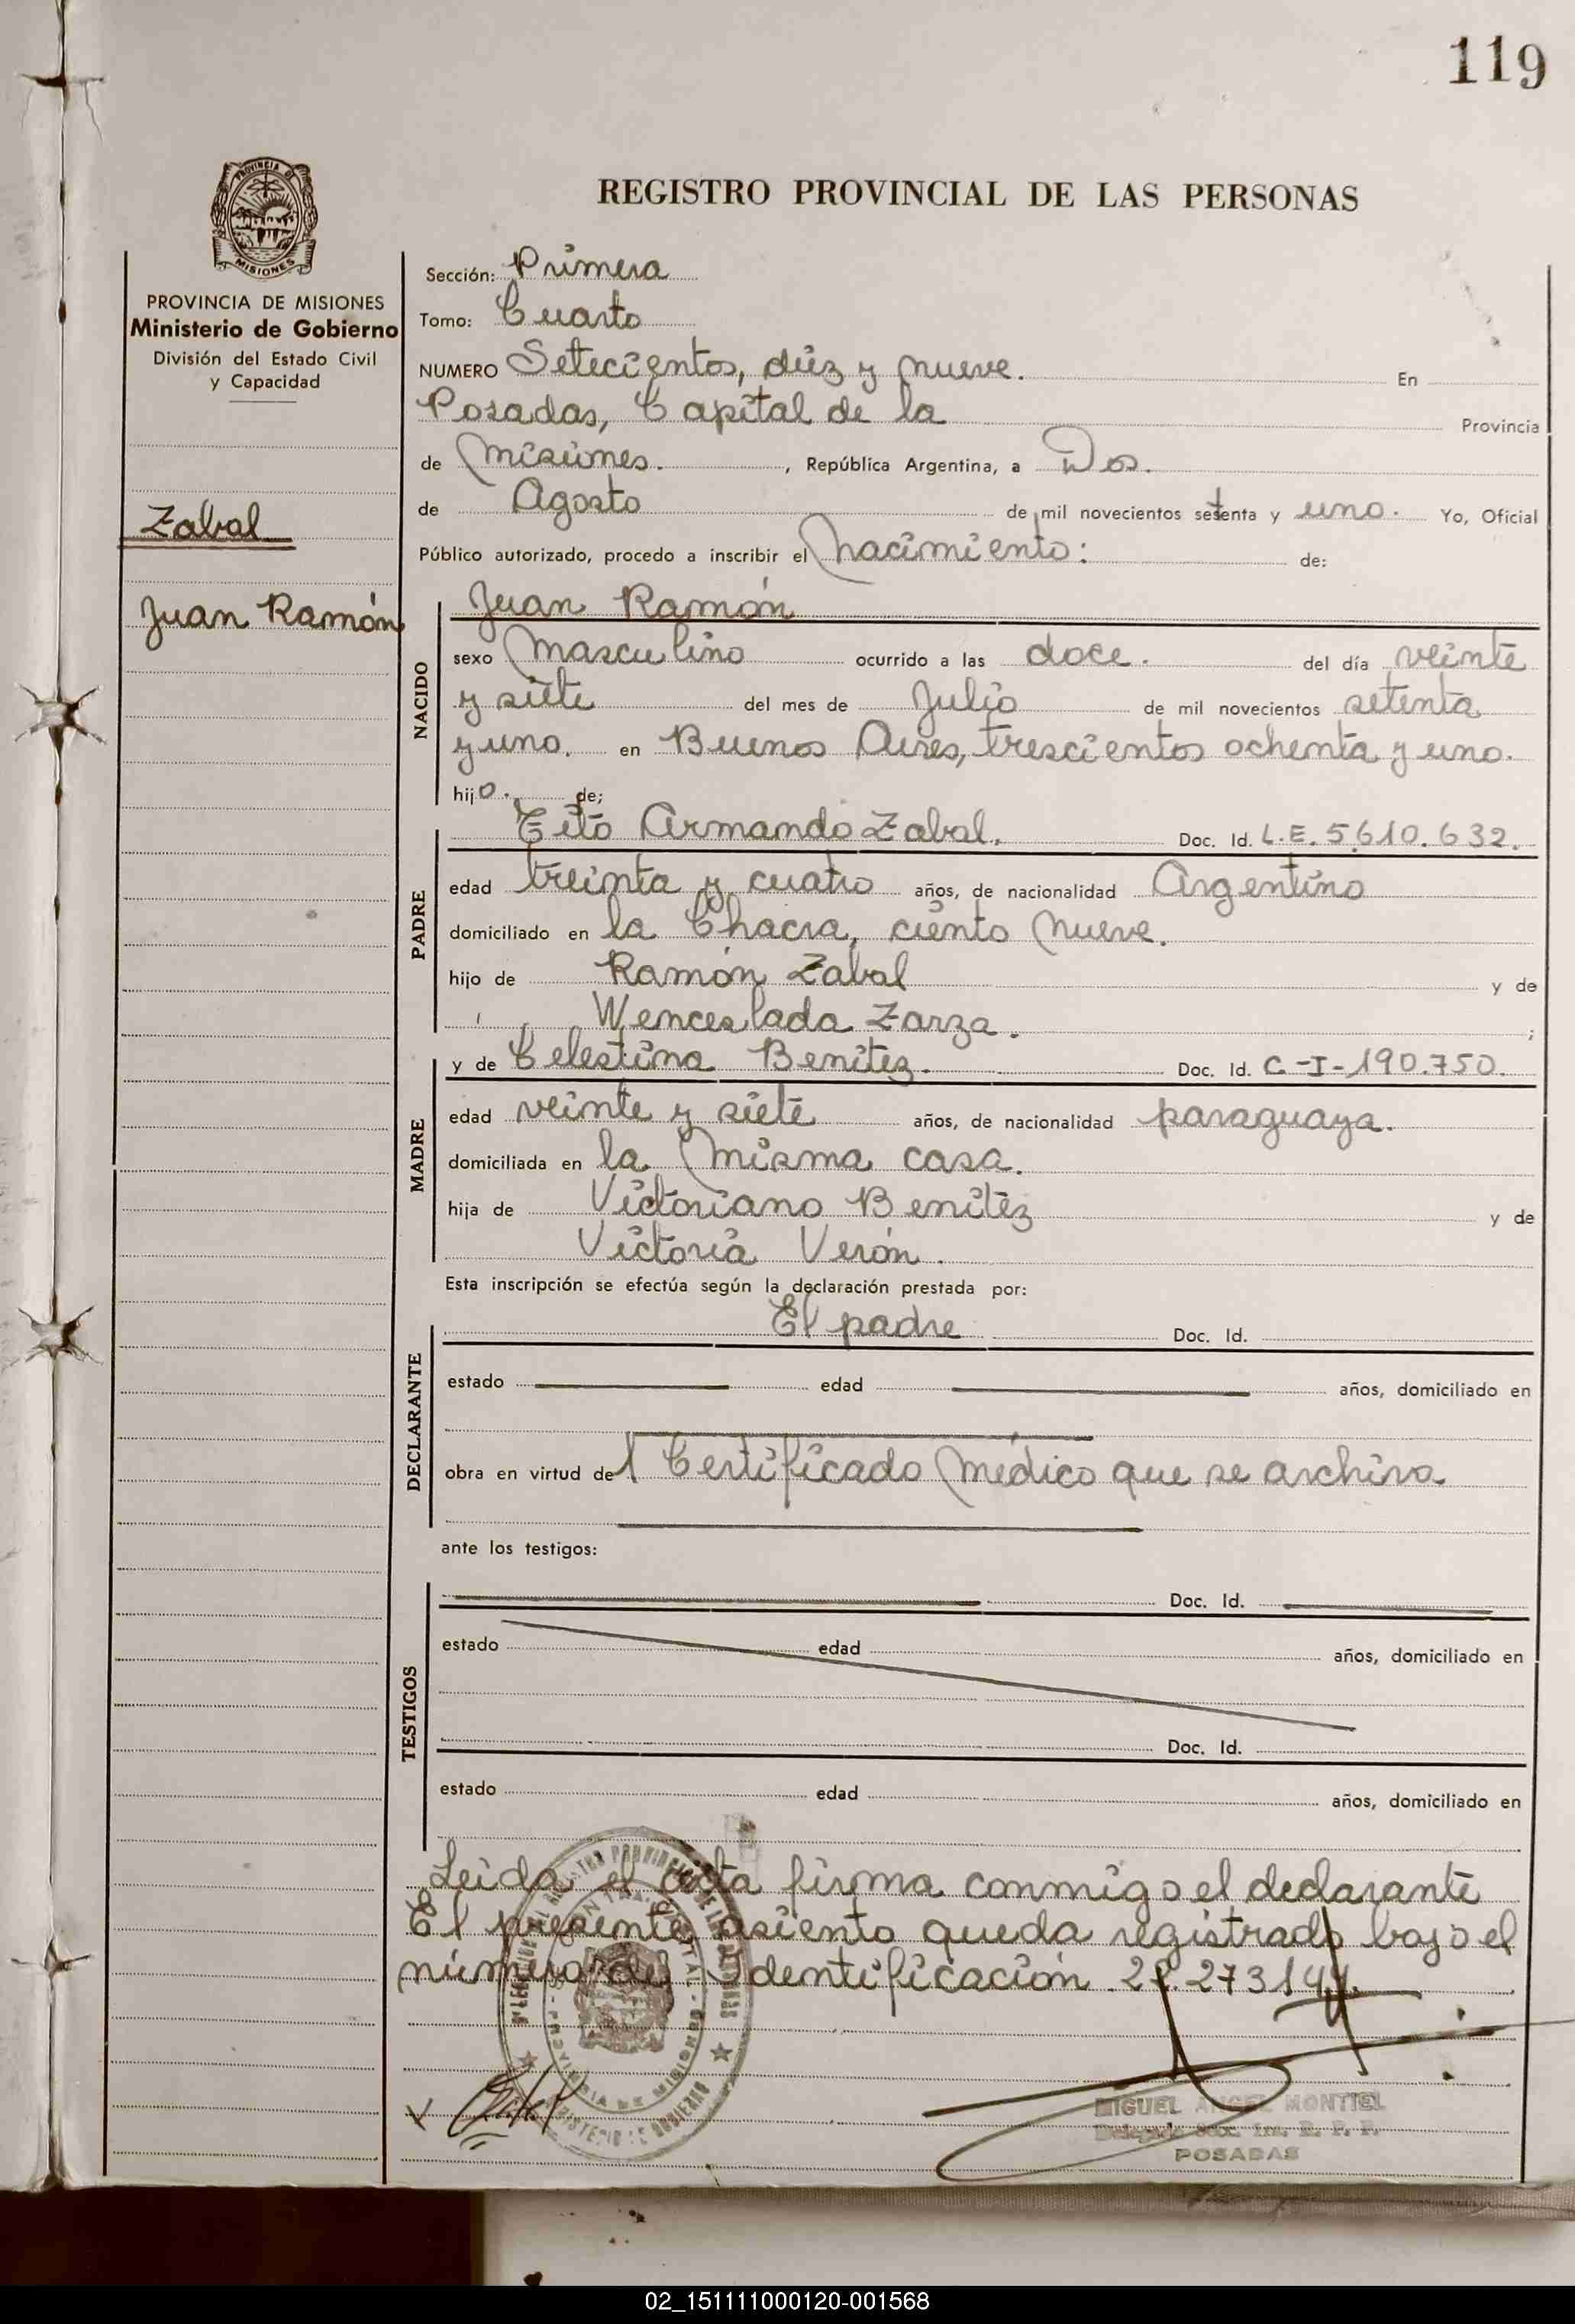 119
PROVINCIA DE
MISIONES
REGISTRO PROVINCIAL DE LAS PERSONAS
PROVINCIA DE MISIONES
Ministerio de Gobierno
División del Estado Civil
y Capacidad
Zabal
Juan Ramón
Sección: Primera
Tomo: Cuarto
NUMERO Setecientos, diez y nueve. En
Posadas, Capital de la Provincia
de Misiones. , República Argentina, a Dos.
de Agosto de mil novecientos setenta y uno. Yo, Oficial
Público autorizado, procedo a inscribir el Nacimiento: de:
NACIDO
Juan Ramón
sexo Masculino ocurrido a las doce. del día veinte
y siete del mes de Julio de mil novecientos setenta
y uno. en Buenos Aires, trescientos ochenta y uno.
hijo. de;
PADRE
Tito Armando Zabal. Doc. Id. L.E. 5.610.632.
edad treinta y cuatro años, de nacionalidad Argentino
domiciliado en la Chacra, ciento nueve.
hijo de Ramón Zabal y de
Wenceslada Zarza. ;
MADRE
y de Celestina Benitez. Doc. Id. C-I-190.750.
edad veinte y siete años, de nacionalidad paraguaya.
domiciliada en la Misma casa.
hija de Victoriano Benitez y de
Victoria Verón.
Esta inscripción se efectúa según la declaración prestada por:
DECLARANTE
El padre Doc. Id.
estado edad años, domiciliado en
obra en virtud del Certificado Médico que se archiva
ante los testigos:
TESTIGOS
Doc. Id.
estado edad años, domiciliado en
Doc. Id.
estado edad años, domiciliado en
Leida el acta firma conmigo el declarante
El presente asiento queda registrado bajo el
número de Identificación
MIGUEL ANGEL MONTIEL
POSADAS
02_151111000120-001568